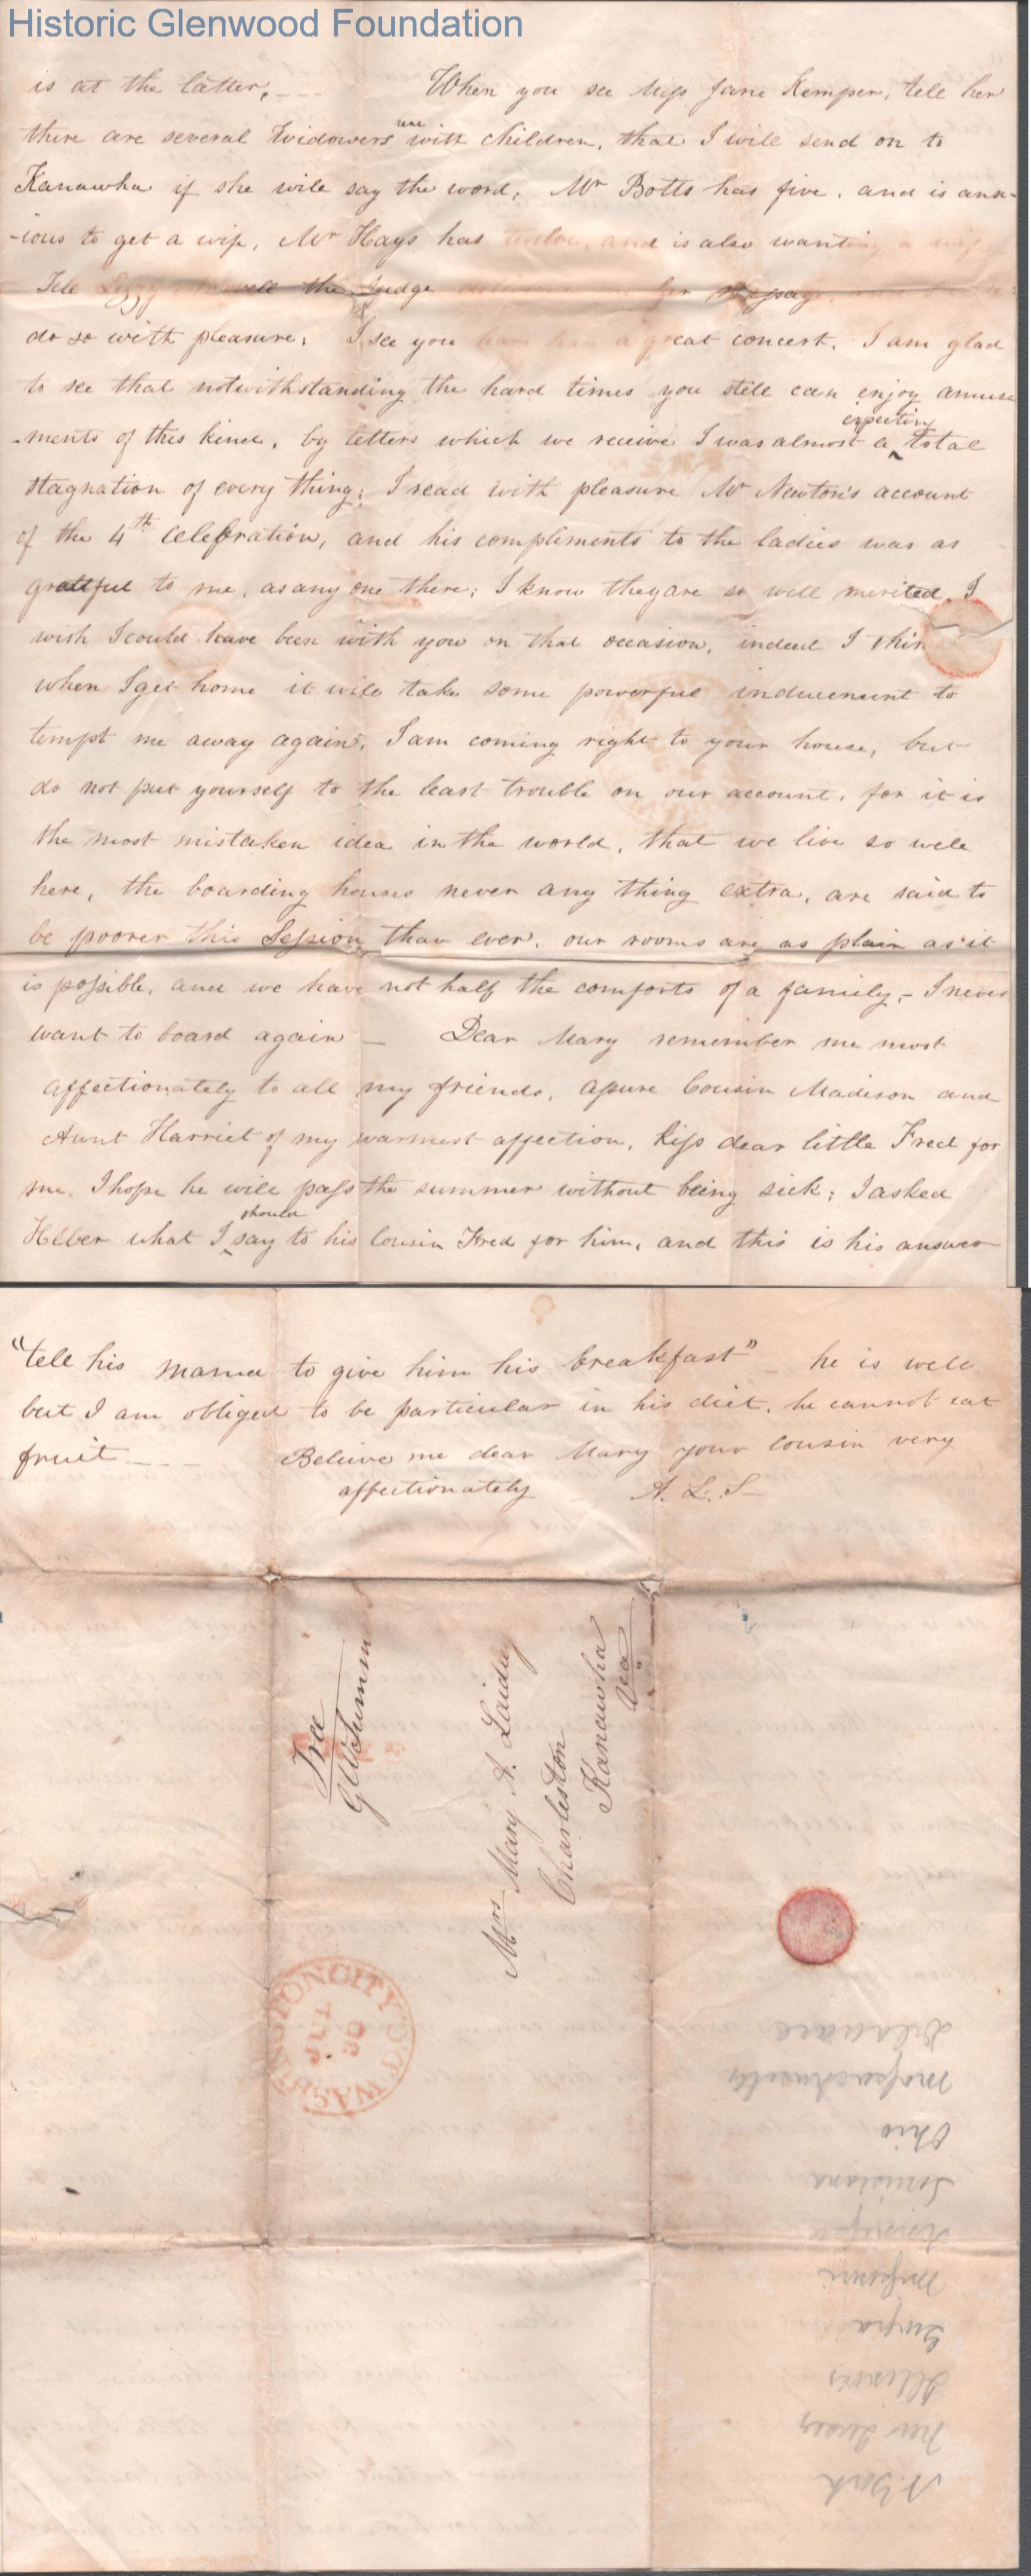 Historic Glenwood Foundation
is at the latter, — — When you see Miss Jane Kemper, tell her
there are several Widowers here with children, that I will send on to
Kanawha if she will say the word, Mr Botts has five, and is anx-
-ious to get a wife, Mr Hays has twelve, and is also wanting a wife
Tell Lizzy the Judge her message,
do so with pleasure; I see you have had a great concert. I am glad
to see that notwithstanding the hard times you still can enjoy amuse
-ments of this kind, by letters which we receive I was almost expecting a total
stagnation of every thing; I read with pleasure Mr Newton's account
of the 4th celebration, and his compliments to the ladies was as
grateful to me, as any one there; I know they are so well merited, I
wish I could have been with you on that occasion, indeed I thin
when I get home it will take some powerful inducement to
tempt me away again, I am coming right to your house, but
do not put yourself to the least trouble on our account, for it is
the most mistaken idea in the world, that we live so well
here, the boarding houses never any thing extra, are said to
be poorer this Session than ever, our rooms are as plain as it
is possible, and we have not half the comforts of a family, – I never
want to board again — Dear Mary remember me most
affectionately to all my friends, assure Cousin Madison and
Aunt Harriet of my warmest affection, kiss dear little Fred for
me, I hope he will pass the summer without being sick; I asked
Heber what I should say to his Cousin Fred for him, and this is his answer
"tell his mama to give him his breakfast" – he is well
but I am obliged to be particular in his diet, he cannot eat
fruit — — — Believe me dear Mary your cousin very
affectionately A. L. S—
Free
GW Summers
Mrs Mary A. Laidley
Charleston
Kanawha
Va
WASHINGTON CITY D.C.
JUL
30
Delaware
Massachusetts
Ohio
Louisiana
Missouri
Illinois
New Jersey
N. York